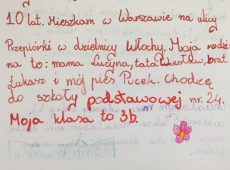 10 lat. Mieszkam w Warszawie na ulicy
Przepiórki w dzielnicy Włochy. Moja rodzi-
na to: mama Lucyna, tata Wiesław, brat
Łukasz i mój pies Pucek. Chodzę
do szkoły podstawowej nr. 24.
Moja klasa to 3b.